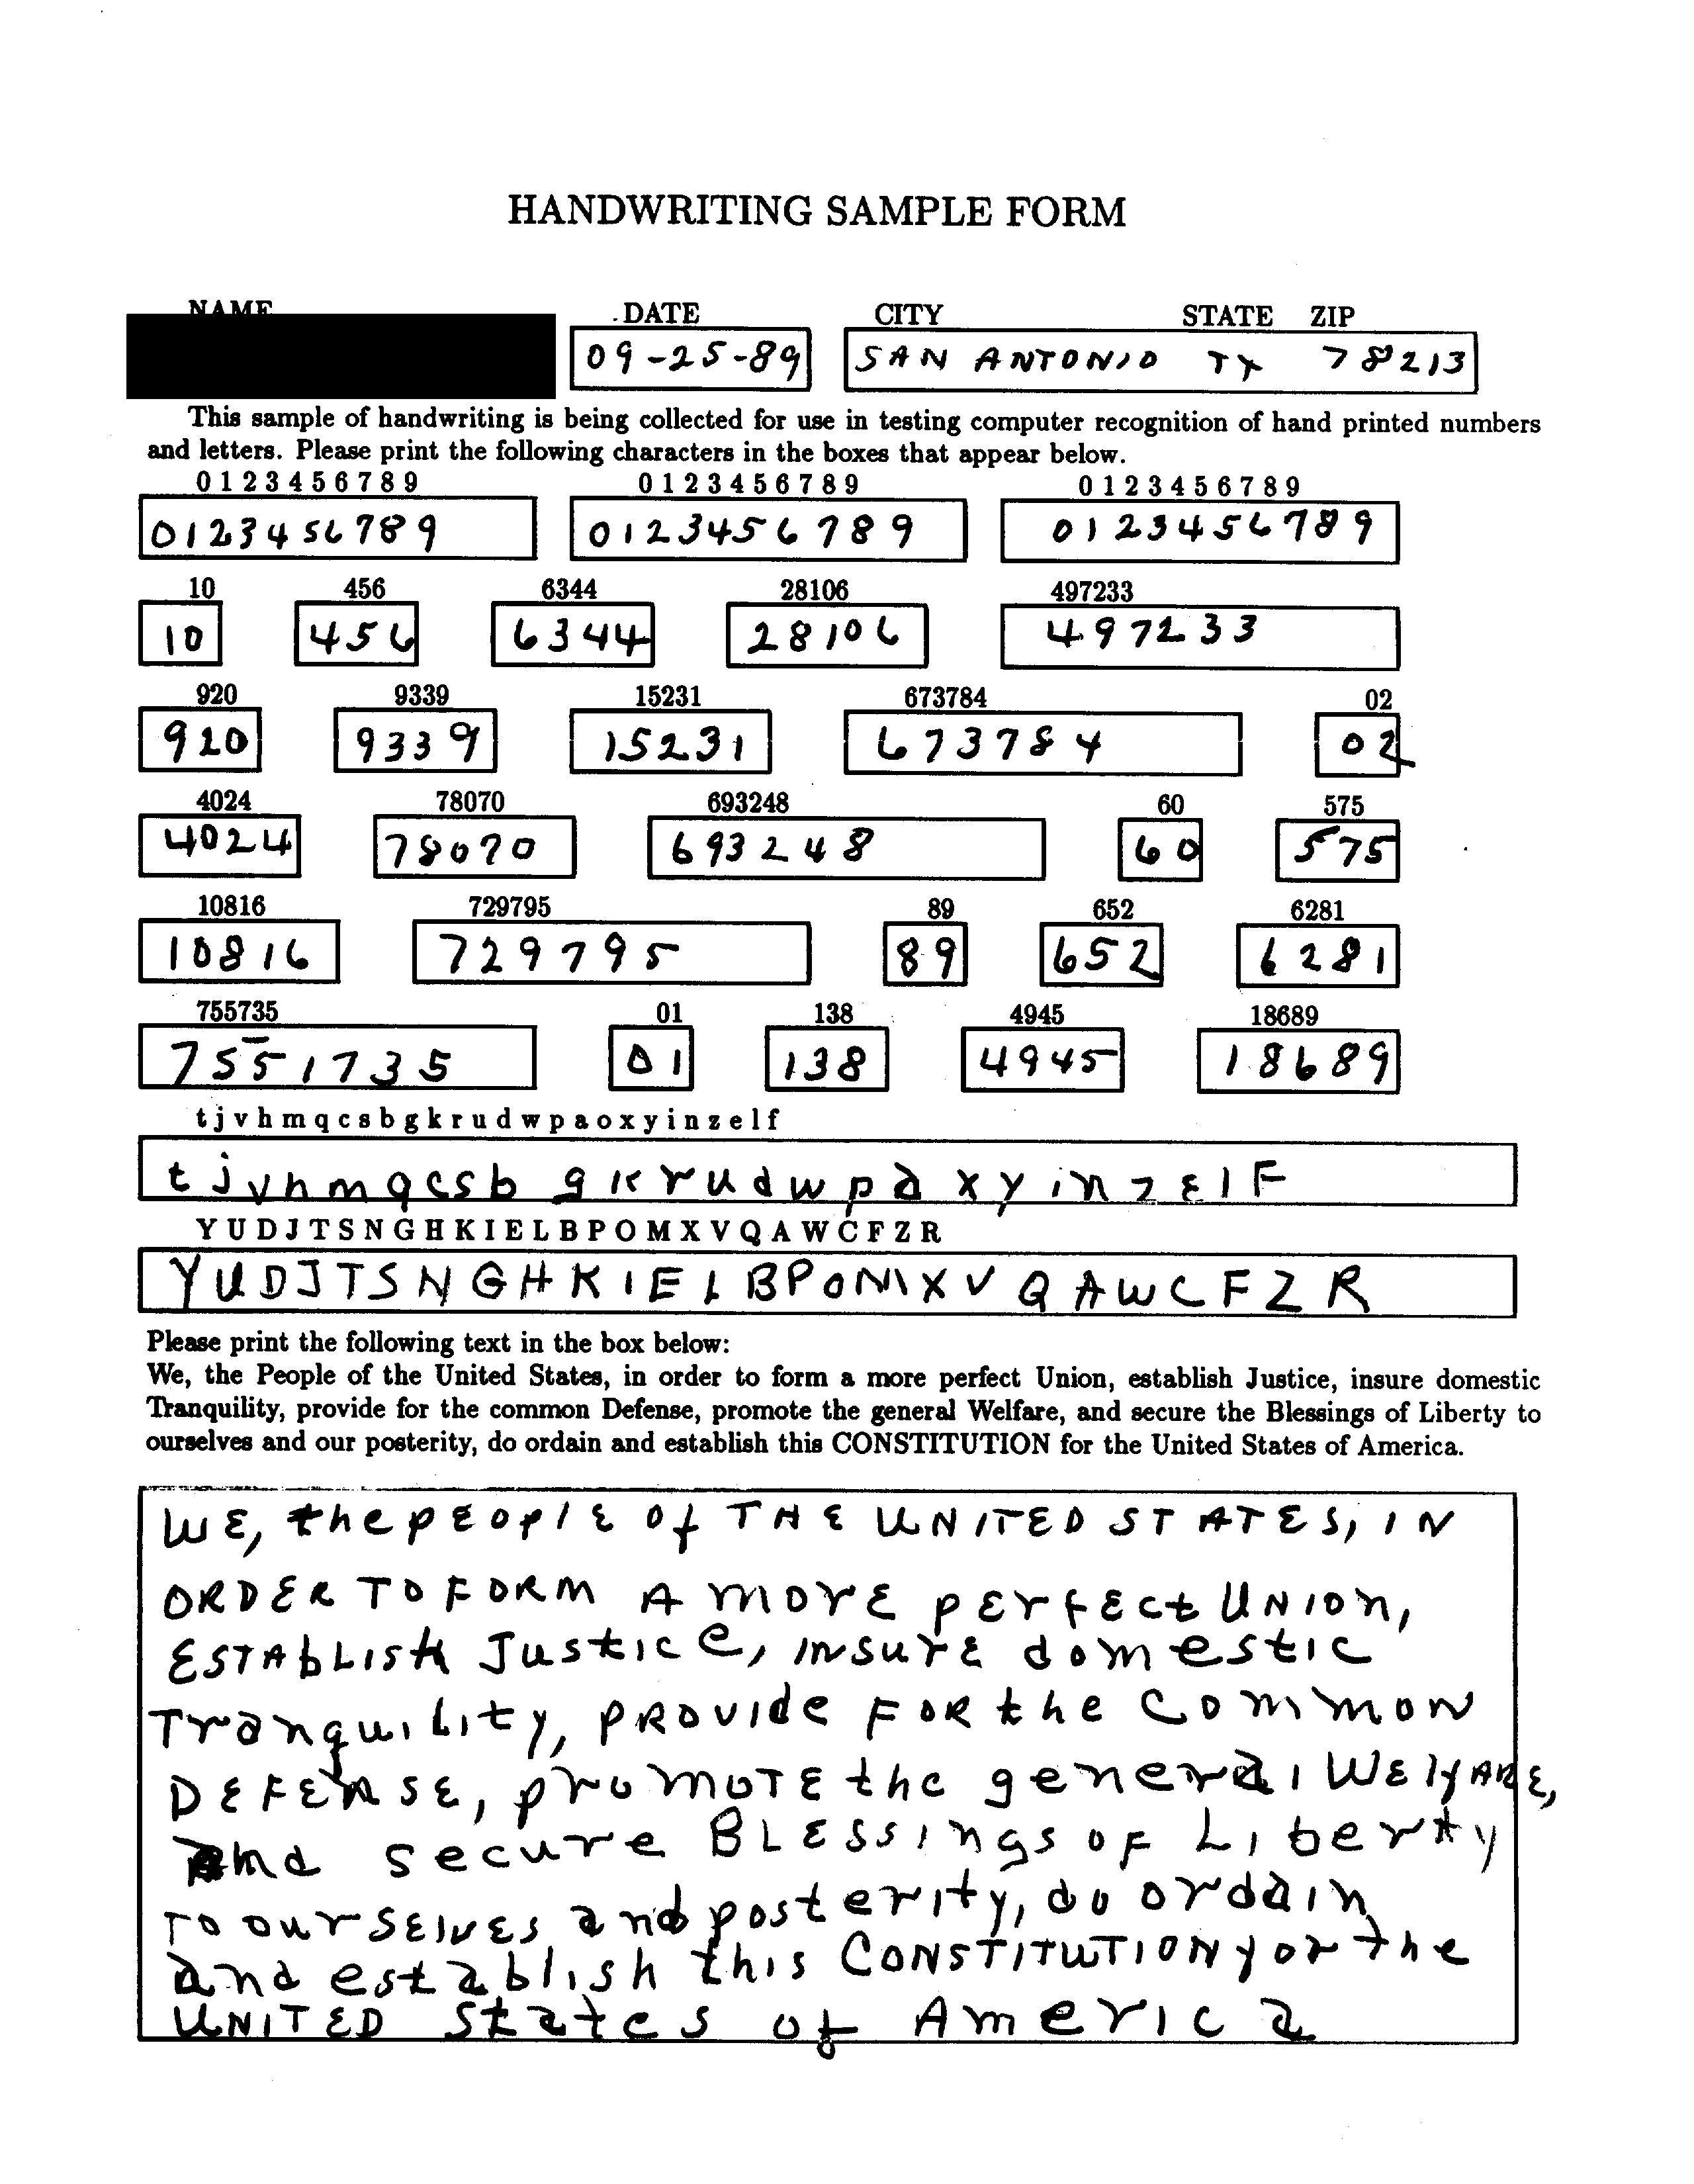 HANDWRITING SAMPLE FORM
NAME DATE CITY STATE ZIP
09-25-89 SAN ANTONIO TX 78213
This sample of handwriting is being collected for use in testing computer recognition of hand printed numbers
and letters. Please print the following characters in the boxes that appear below.
0 1 2 3 4 5 6 7 8 9 0 1 2 3 4 5 6 7 8 9 0 1 2 3 4 5 6 7 8 9
0123456789 0123456789 0123456789
10 456 6344 28106 497233
10 456 6344 28106 497233
920 9339 15231 673784 02
920 9339 15231 673784 02
4024 78070 693248 60 575
4024 78070 693248 60 575
10816 729795 89 652 6281
10816 729795 89 652 6281
755735 01 138 4945 18689
7551735 01 138 4945 18689
t j v h m q c s b g k r u d w p a o x y i n z e l f
t j v h m q c s b g k r u d w p a x y i n z E l F
Y U D J T S N G H K I E L B P O M X V Q A W C F Z R
Y U D J T S N G H K I E L B P O M X V Q A W C F Z R
Please print the following text in the box below:
We, the People of the United States, in order to form a more perfect Union, establish Justice, insure domestic
Tranquility, provide for the common Defense, promote the general Welfare, and secure the Blessings of Liberty to
ourselves and our posterity, do ordain and establish this CONSTITUTION for the United States of America.
WE, the pEOplE Of THE UNITED STATES, IN
ORDER TO FORM A MORE pERfECt UNION,
ESTAbLISH JustICe, INsurE domestic
TranquiLity, PROVIde FOR the Common
DEFENSE, promOTE the general WElfARE,
and secure BLESSINgs OF Liberty
TO ourSElvES and posterity, do ordain
and establish this CONSTITUTION for the
UNITED States of America